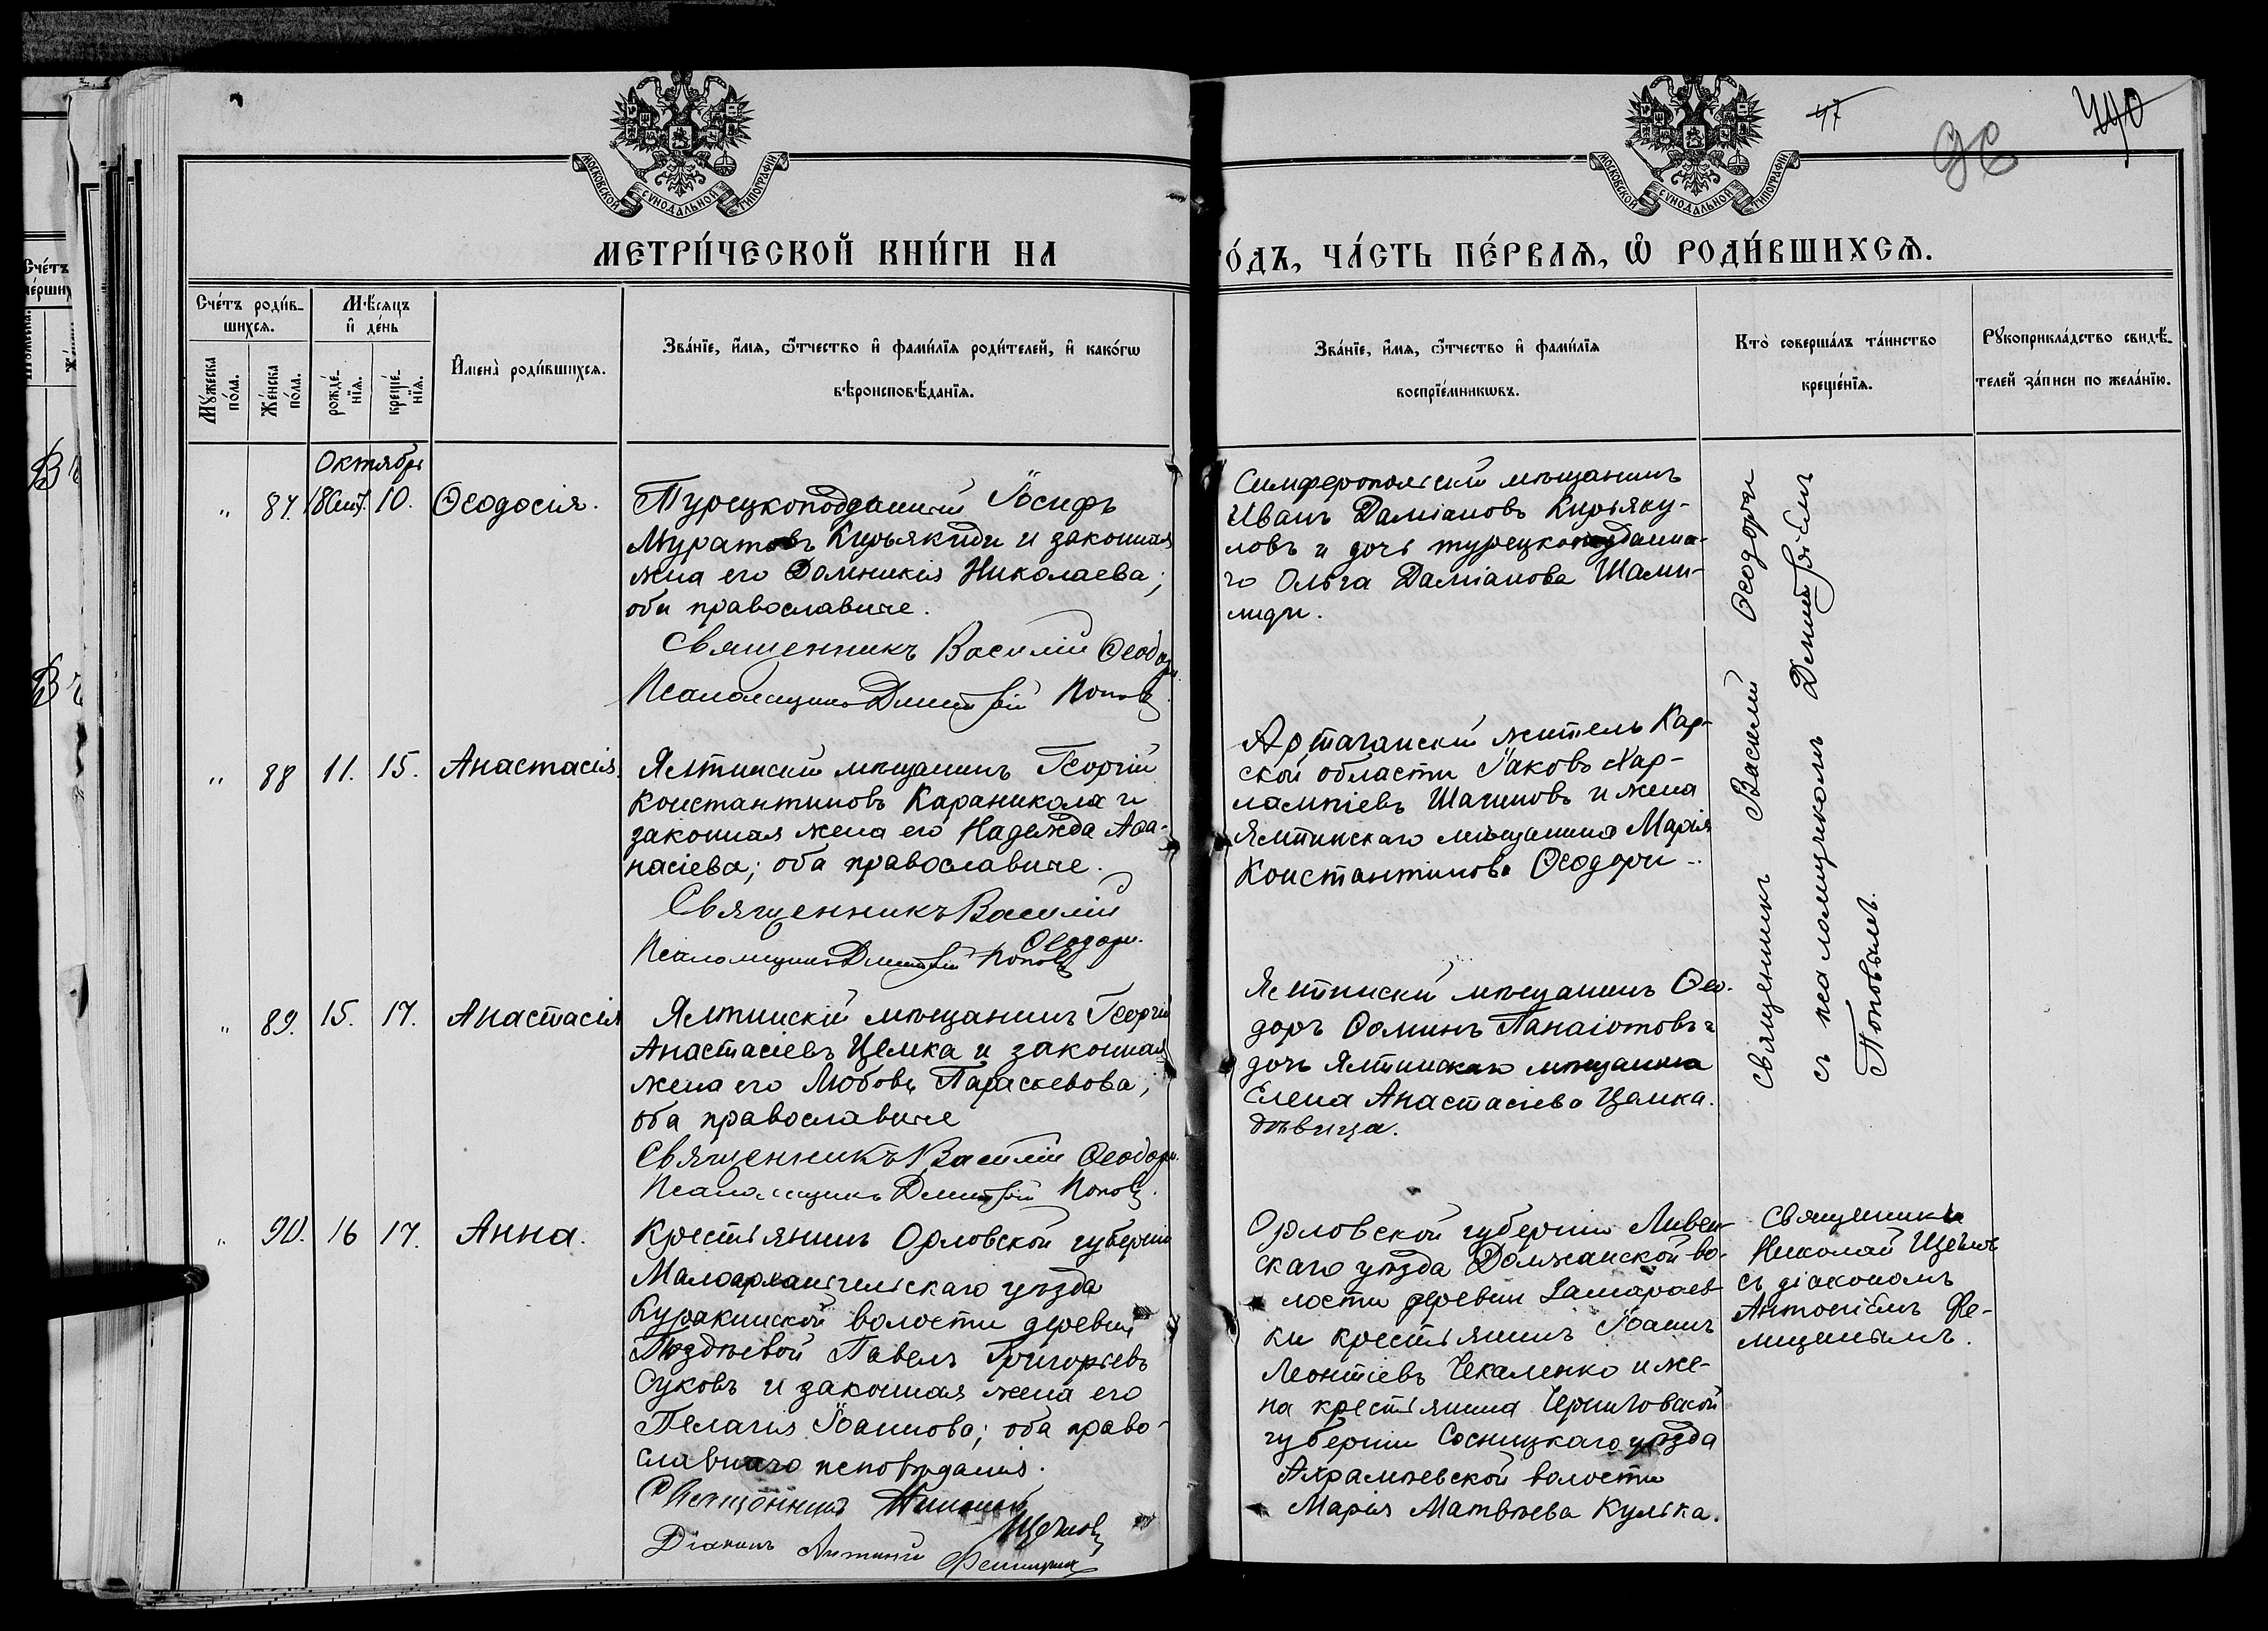 47
440
МОСКОВСКОЙ СѴНОДАЛЬНОЙ ТИПОГРАФІИ
МОСКОВСКОЙ СѴНОДАЛЬНОЙ ТИПОГРАФІИ
МЕТРИ́ЧЕСКОЙ КНИ́ГИ НА
ГО́ДЪ, ЧА́СТЬ ПЕ́РВАѦ, Ѡ҆ РОДИ́ВШИХСѦ.
Сче́тъ
ме́рших
Сче́тъ роди́в-
шихсѧ.
Мꙋ́жеска по́ла.
Же́нска по́ла.
Мѣ́сѧцъ
и҆ де́нь
рожде́-
нїѧ.
креще́-
нїѧ.
И҆мена̀ роди́вшихсѧ.
Зва́нїе, и҆́мѧ, ѻ҆́тчество и҆ фами́лїѧ роди́телей, и҆ како́гѡ
вѣроисповѣ́данїѧ.
Зва́нїе, и҆́мѧ, ѻ҆́тчество и҆ фами́лїѧ
воспрїе́мникѡвъ.
Кто̀ соверша́лъ та́инство
креще́нїѧ.
Рꙋкоприкла́дство свидѣ́-
телей за́писи по жела́нїю.
Октябрь
" 87. 18 Сент. 10. Ѳеодосія.
Турецкоподданный Іосифъ
Муратовъ Кирьякиди и законная
жена его Домникія Николаева;
оба православные.
Священникъ Василій Ѳеодори.
Псаломщикъ Дмитрій Поповъ.
Симферопольскій мѣщанинъ
Иванъ Даміановъ Кирьяку-
ловъ и дочь турецкоподданна-
го Ольга Даміанова Шами-
лиди.
Священникъ Василій Ѳеодори
съ псаломщикомъ Димитріемъ
Поповымъ.
" 88 11. 15. Анастасія.
Ялтинскій мѣщанинъ Георгій
Константиновъ Караникола и
законная жена его Надежда Аѳа-
насіева; оба православные.
Священникъ Василій
Ѳеодори.
Псаломщикъ Дмитрій Поповъ
Артаганскій житель Кар-
ской области Іаковъ Хар-
лампіевъ Шагиновъ и жена
Ялтинскаго мѣщанина Марія
Константинова Ѳеодори
" 89. 15. 17. Анастасія
Ялтинскій мѣщанинъ Георгій
Анастасіевъ Цамка и законная
жена его Любовь Параскевова;
оба православные
Священникъ Василій Ѳеодори.
Псаломщикъ Дмитрій Поповъ.
Ялтинскій мѣщанинъ Ѳео-
доръ Ѳоминъ Панаіотовъ и
дочь Ялтинскаго мѣщанина
Елена Анастасіева Цамка.
дѣвица.
" 90. 16 17. Анна.
Крестьянинъ Орловской губерніи
Малоархангельскаго уѣзда
Куракинской волости деревни
Поздѣевой Павелъ Григорьевъ
Суковъ и законная жена его
Пелагія Іоаннова; оба право-
славнаго исповѣданія.
Священникъ Николай
Щегловъ
Діаконъ Антоній Фелицынъ
Орловской губерніи Ливен-
скаго уѣзда Должанской во-
лости деревни
ки крестьянинъ Іоаннъ
Леонтіевъ Чекаленко и же-
на крестьянина Черниговской
губерніи Сосницкаго уѣзда
Ахрамѣевской волости
Марія Матвѣева Кулька.
Священникъ
Николай Щегловъ
съ діакономъ
Антоніемъ Фе-
лицынымъ.